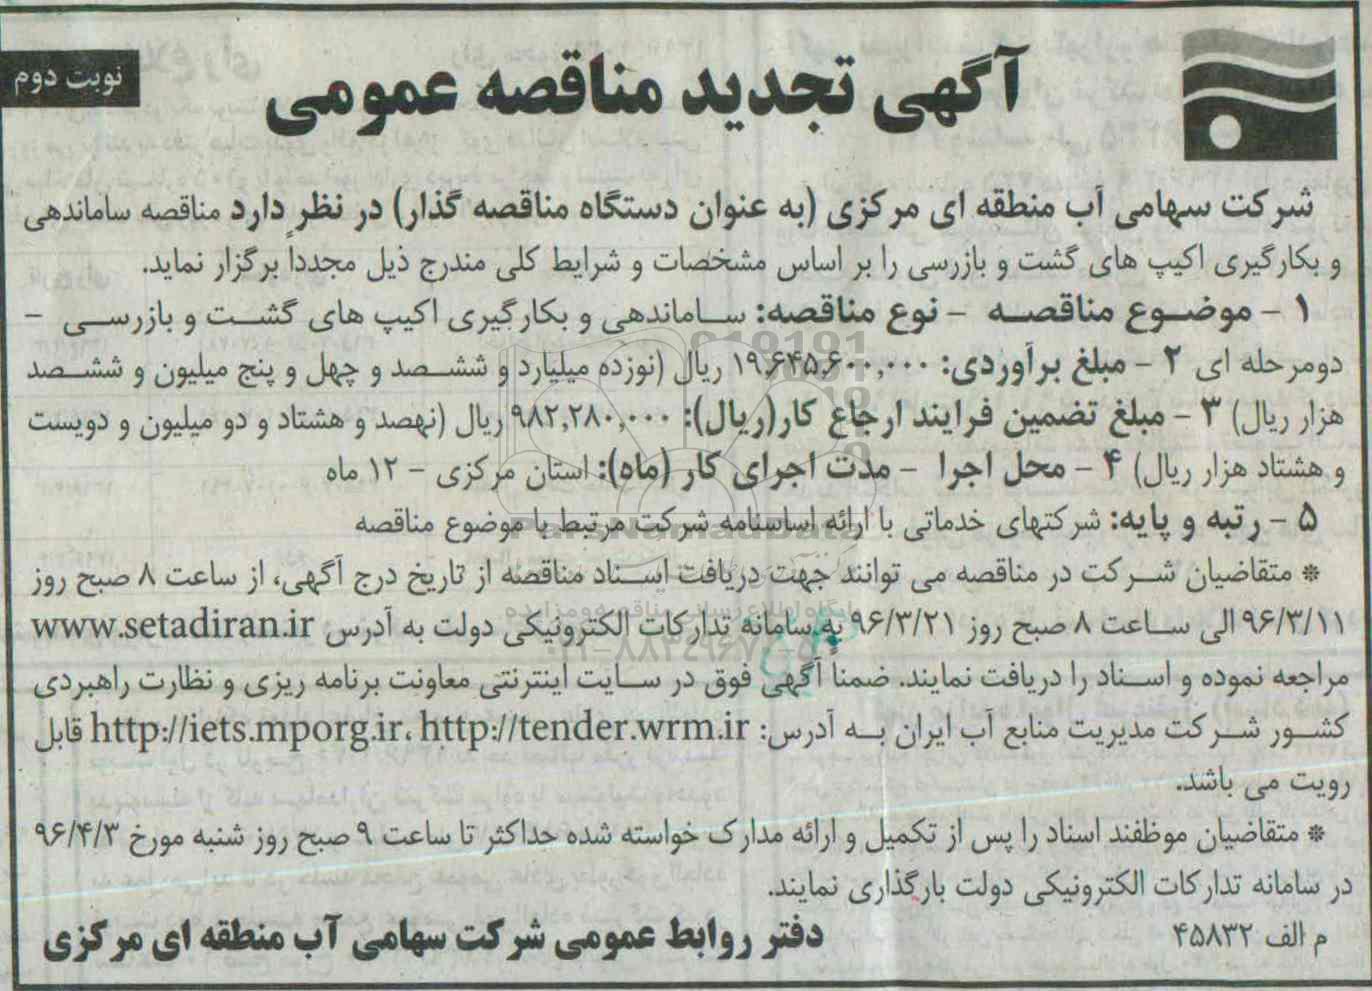 آگهی تجدید مناقصه عمومی
نوبت دوم
شرکت سهامی آب منطقه ای مرکزی (به عنوان دستگاه مناقصه گذار) در نظر دارد مناقصه ساماندهی
و بکارگیری اکیپ های گشت و بازرسی را بر اساس مشخصات و شرایط کلی مندرج ذیل مجدداً برگزار نماید.
۱ - موضوع مناقصه - نوع مناقصه: ساماندهی و بکارگیری اکیپ های گشت و بازرسی -
دومرحله ای ۲ - مبلغ برآوردی: ۱۹,۶۴۵,۶۰۰,۰۰۰ ریال (نوزده میلیارد و ششصد و چهل و پنج میلیون و ششصد
هزار ریال) ۳ - مبلغ تضمین فرایند ارجاع کار(ریال): ۹۸۲,۲۸۰,۰۰۰ ریال (نهصد و هشتاد و دو میلیون و دویست
و هشتاد هزار ریال) ۴ - محل اجرا - مدت اجرای کار (ماه): استان مرکزی - ۱۲ ماه
۵ - رتبه و پایه: شرکتهای خدماتی با ارائه اساسنامه شرکت مرتبط با موضوع مناقصه
* متقاضیان شرکت در مناقصه می توانند جهت دریافت اسناد مناقصه از تاریخ درج آگهی، از ساعت ۸ صبح روز
۹۶/۳/۱۱ الی ساعت ۸ صبح روز ۹۶/۳/۲۱ به سامانه تدارکات الکترونیکی دولت به آدرس www.setadiran.ir
مراجعه نموده و اسناد را دریافت نمایند. ضمنا آگهی فوق در سایت اینترنتی معاونت برنامه ریزی و نظارت راهبردی
کشور شرکت مدیریت منابع آب ایران به آدرس: http://iets.mporg.ir، http://tender.wrm.ir قابل
رویت می باشد.
* متقاضیان موظفند اسناد را پس از تکمیل و ارائه مدارک خواسته شده حداکثر تا ساعت ۹ صبح روز شنبه مورخ ۹۶/۴/۳
در سامانه تدارکات الکترونیکی دولت بارگذاری نمایند.
م الف ۴۵۸۳۲
دفتر روابط عمومی شرکت سهامی آب منطقه ای مرکزی
ParsNamadData
۰۲۱-۸۸۳۴۹۶۷۰-۵